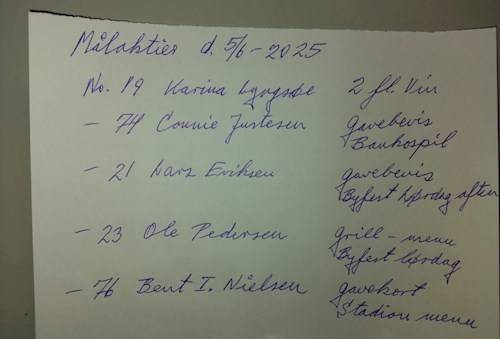 Målaktier d. 5/6-2025
No. 19 Karina Lyngsøe 2 fl. Vin
- 74 Connie Justesen gavebevis
Bankospil
- 21 Lars Eriksen gavebevis
Byfest Lørdag aften
- 23 Ole Pedersen grill-menu
Byfest lørdag
- 76 Bent I. Nielsen gavekort
Stadion menu